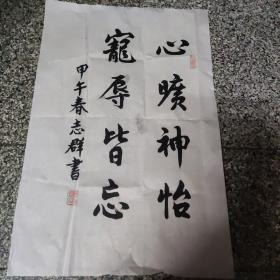 心曠神怡
寵辱皆忘
甲午春志群書